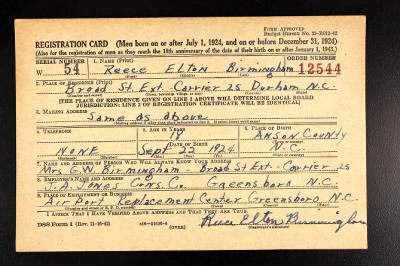 FORM APPROVED
Budget Bureau No. 33-R012-42
REGISTRATION CARD (Men born on or after July 1, 1924, and on or before December 31, 1924)
(Also for the registration of men as they reach the 18th anniversary of the date of their birth on or after January 1, 1943.)
SERIAL NUMBER 1. NAME (Print) ORDER NUMBER
W 54 Reece Elton Birmingham 12544
2. PLACE OF RESIDENCE (Print)
Broad St. Ext. Carrier 25 Durham N.C.
[THE PLACE OF RESIDENCE GIVEN ON LINE 2 ABOVE WILL DETERMINE LOCAL BOARD
JURISDICTION; LINE 2 OF REGISTRATION CERTIFICATE WILL BE IDENTICAL]
3. MAILING ADDRESS
Same as above
4. TELEPHONE 5. AGE IN YEARS 6. PLACE OF BIRTH
18 Anson County
DATE OF BIRTH
None Sept 22 1924 N.C.
7. NAME AND ADDRESS OF PERSON WHO WILL ALWAYS KNOW YOUR ADDRESS
Mrs G.W. Birmingham - Broad St Ext - Carrier 25
8. EMPLOYER'S NAME AND ADDRESS
J.A. Jones Cons. C. Greensboro N.C.
9. PLACE OF EMPLOYMENT OR BUSINESS
Air Port Replacement Center Greensboro N.C.
I AFFIRM THAT I HAVE VERIFIED ABOVE ANSWERS AND THAT THEY ARE TRUE.
DSS Form 1 (Rev. 11-16-42) (OVER) Reece Elton Birmingham